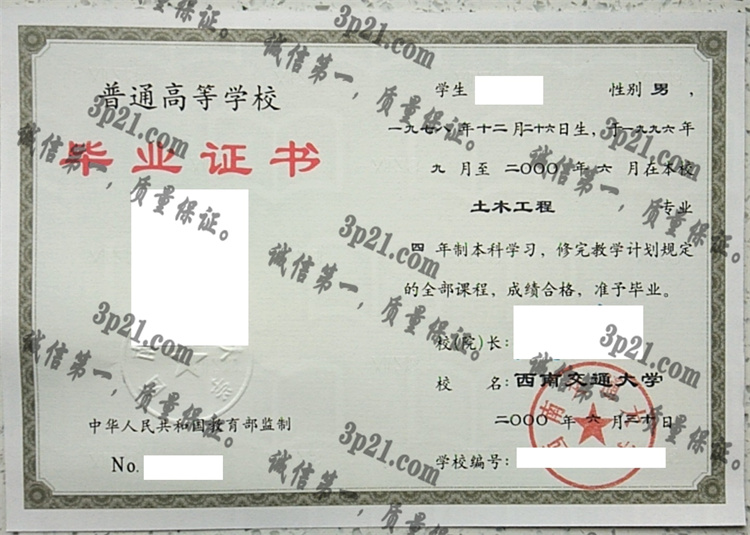 普通高等学校
毕业证书
中华人民共和国教育部监制
No.
学生 性别 男 ，
一九七八年十二月二十六日生，于一九九六年
九 月至 二〇〇〇 年 六 月在本校
土木工程 专业
四 年制本科学习，修完教学计划规定
的全部课程，成绩合格，准予毕业。
校(院)长：
校 名：西南交通大学
二〇〇〇 年 六 月二十日
学校编号：
3p21.com
诚信第一，质量保证。
3p21.com
诚信第一，质量保证。
3p21.com
诚信第一，质量保证。
3p21.com
诚信第一，质量保证。
3p21.com
诚信第一，质量保证。
3p21.com
诚信第一，质量保证。
3p21.com
诚信第一，质量保证。
3p21.com
诚信第一，质量保证。